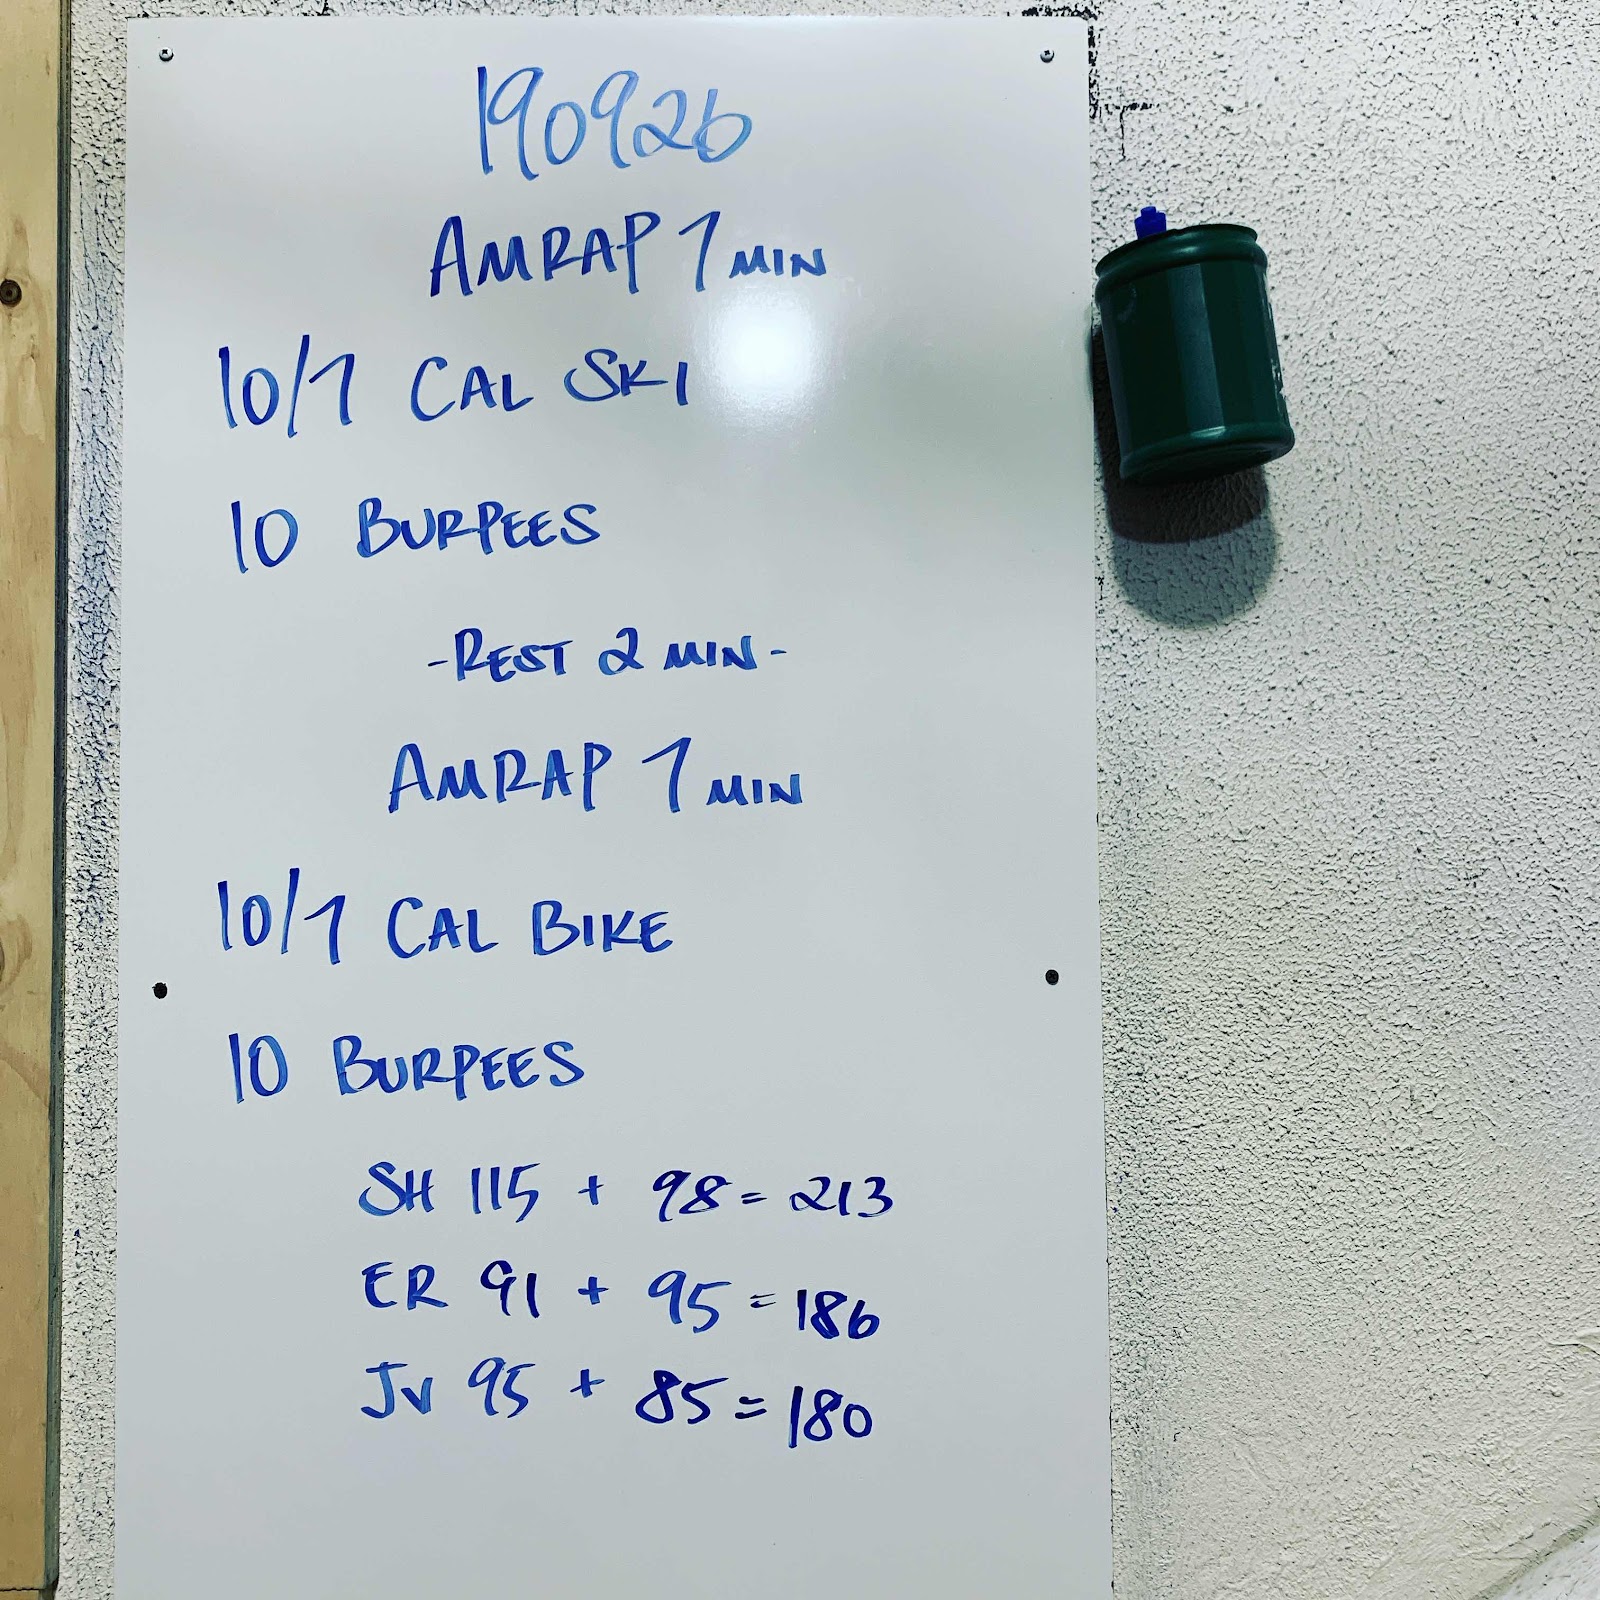 190926
AMRAP 7 MIN
10/7 CAL SKI
10 BURPEES
-REST 2 MIN-
AMRAP 7 MIN
10/7 CAL BIKE
10 BURPEES
SH 115 + 98 = 213
ER 91 + 95 = 186
JV 95 + 85 = 180